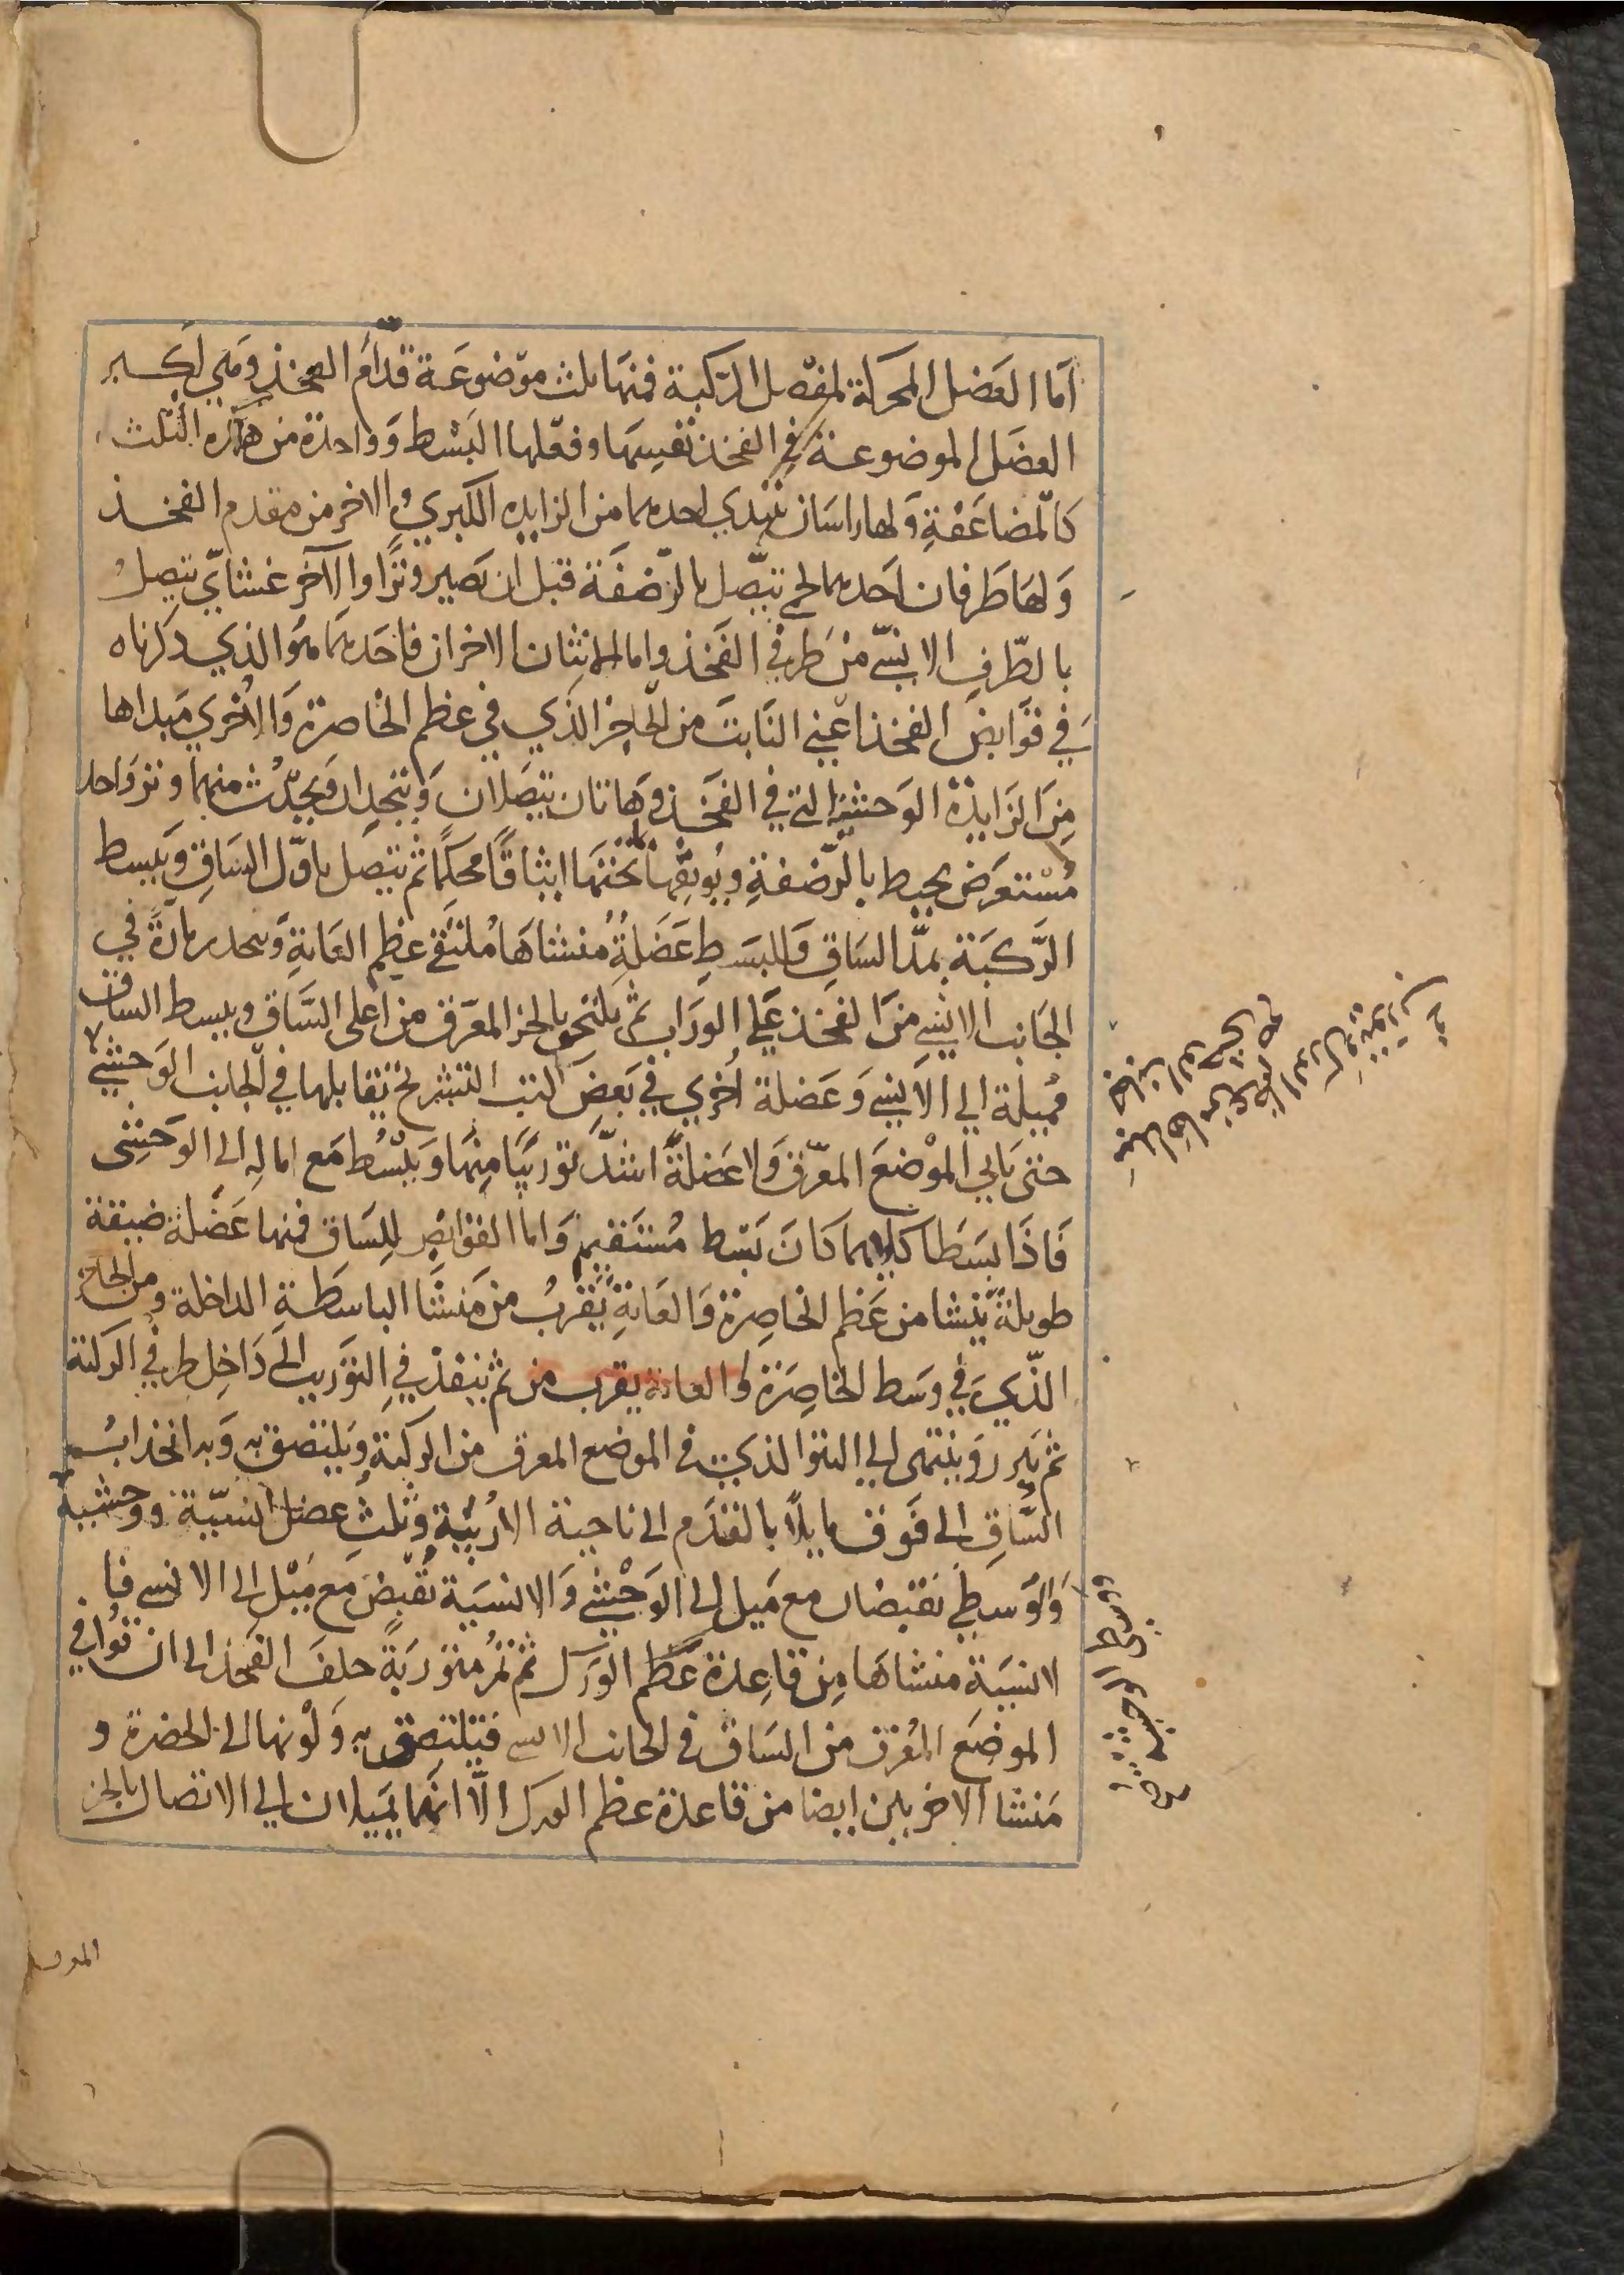 اما العَضل المحركة لمفصل الركبة فمنها ثلث موضوعَة قدام الفخذ وهي اكبر
العضَل الموضوعة في الفخذ نفسِها وفعلها البَسْط وَواحدة من هذه الثلث
كالمضاعَفةِ وَلها راسَان يبتدي احدهما من الزايده الكبري والاخر من مقدم الفخذ
وَلهَا طَرفان احدهما لحمي يتّصل بالرّضفَة قبل ان تصير وترًا والآخر غشائي يتصلُ
بالطّرفِ الانسيّ منْ طَرفي الفَخذ واما الاثنتان الاخران فاحَدهمَا هوَ الذي ذكرناه
في قوَابض الفخذ اعني النَابتَ من الحاجز الذي في عظم الخاصرة وَالاُخري مَبداها
مِنَ الزَايدَة الوَحشيّة التي في الفخَذ وهَاتان يتصَلان وَيتحِدان وَيحدُث منهما وتر واحد
مُسْتعرَض يحيط بالرّضفةِ ويُوثِقها بما تحْتهَا ايثاقًا محكمًا ثم يتصل باوّل السَاقِ وَيبسط
الرّكبَة بمدّ الساقِ وَللبسَطِ عَضَلةُ مُنشاهَا مُلتقَي عظم العَانةِ وَينحدر مارةً في
الجَانب الانسِي منَ الفخذ عَلي الورَاب ثم يلتحق بالجز المعرق من اعلي السّاق ويبسط الساق
مُميلة الي الانسِي وَعَضلة اُخري في بَعضِ كتب التشريح تقابلها في الجانب الوَحشي
حتى ياتي الموْضعَ المعرّق وَلا عَضلةً اشدّ توريبًا مِنهَا وَيبْسُط مَع امالهِ الي الوَحشِي
فَاذَا بسَطَا كلاهما كَانَ بَسْط مُستقيم وَاما القوَابض لِلسَاق فمنها عَضْلة ضيقة
طويلةٌ ينشا من عَظم الخاصِرة وَالعَانةِ يَقربُ من مَنشَا الباسَطةِ الداخلة ومن الحاجز
الذّي في وسَط الخاصِرَة والعانة يقرب من ثم ينفذ في التوَريب الي دَاخِل طرفي الركبة
ثم يَبرز وَينتهي الي النتو الذي في الموضع المعرق من الركبَةِ وَيلتصق بهِ وَبه انجذابُ
السَّاقِ الي فَوق مايلاً بالقدَم الي ناحية الاُربيّة وَثلث عضل انسيّة ووحشية
وَالوَسطي تقبضان مع مَيل الي الوَحْشِي وَالانسَية تُقبض مع مَيْل الي الانسي فا
لانسَيَة منشاهَا مِن قاعِدة عَظم الورَك ثم تمُر متورّبَةً خلفَ الفَخذ الي ان تُوافي
الموضعَ المُعرق من السَاق في الجانب الانسي فيَلتصق بهِ وَلونها الي الخضرة و
مَنشا الاخريين ايضا من قاعدة عظم الورك الّا انهما يَميلان الي الاتصال بالجز